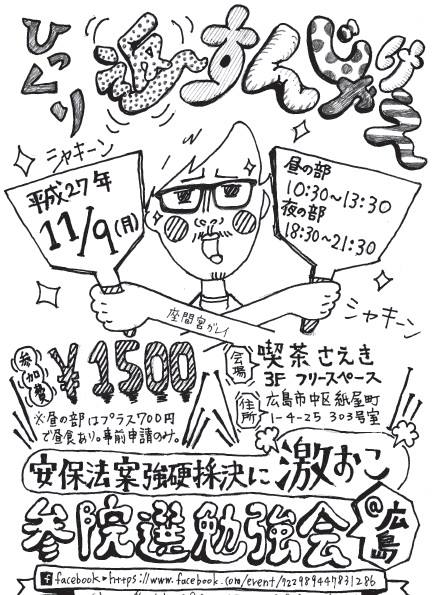 ひっくり返すんじゃけえ
シャキーン
平成27年
11/9(月)
昼の部
10:30~13:30
夜の部
18:30~21:30
シャキーン
座間宮ガレイ
参加費
¥1500
※昼の部はプラス700円
で昼食あり。事前申請のみ。
会場
喫茶さえき
3F フリースペース
住所
広島市中区紙屋町
1-4-25 303号室
安保法案強硬採決に激おこ
参院選勉強会
@広島
facebook▶https://www.facebook.com/event/922989447831286